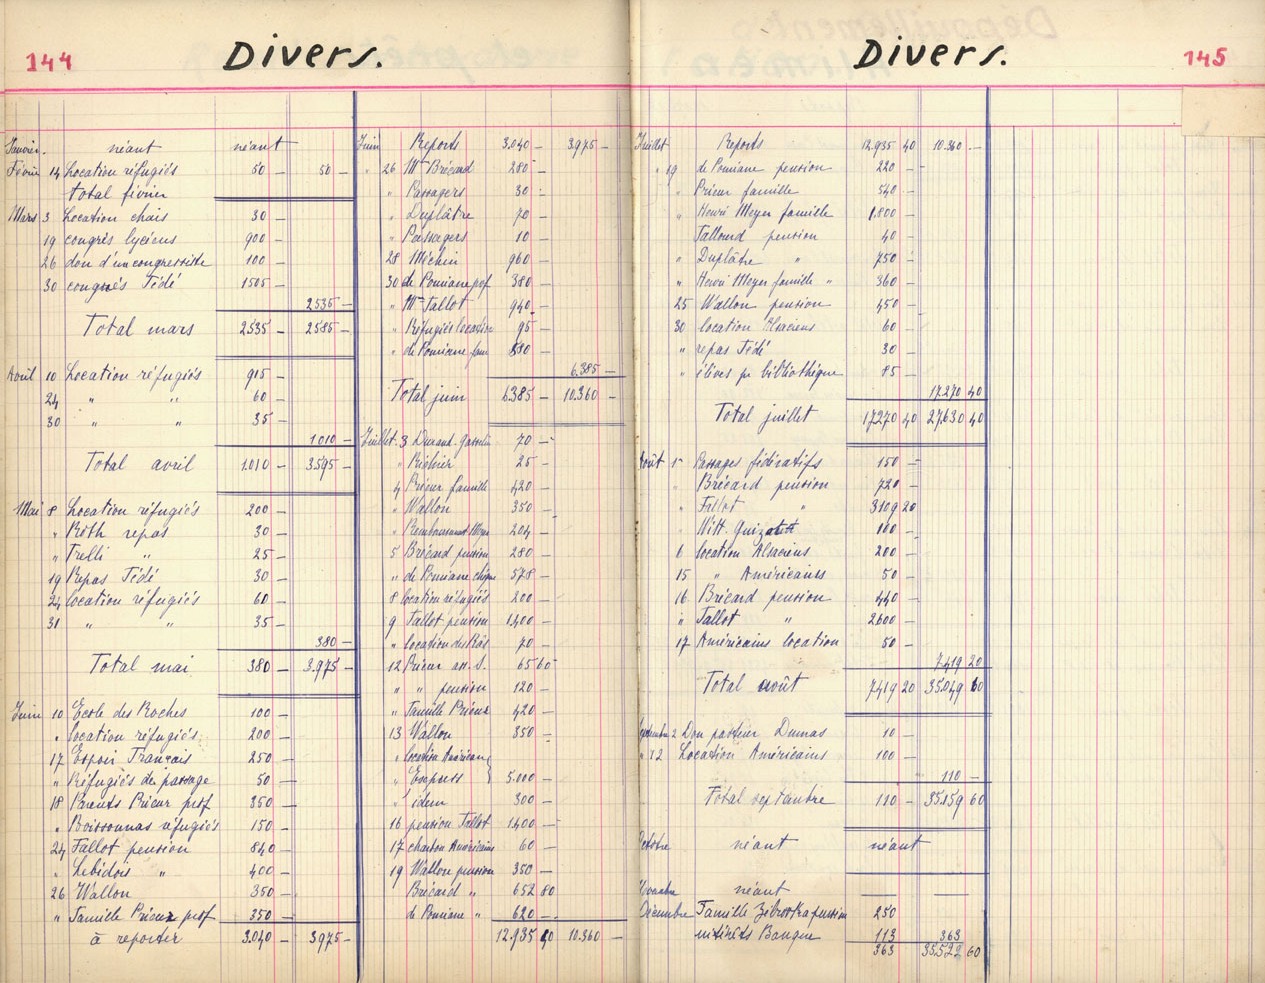 144
Divers.
Janvier. néant néant
Février 14 Location réfugiés 50 - 50 -
total février
Mars 3 Location chais 30 -
19 congrès lycéens 900 -
26 don d'un congressiste 100 -
30 congrés Fédé 1505 -
2535 -
Total mars 2535 - 2585 -
Avril 10 Location réfugiés 915 -
24 " " 60 -
30 " " 35 -
1010 -
Total avril 1010 - 3595 -
Mai 8 Location réfugiés 200 -
" Roth repas 30 -
" Trelli " 25 -
19 Repas Fédé 30 -
24 location réfugiés 60 -
31 " " 35 -
380 -
Total mai 380 - 3.975 -
Juin 10 Ecole des Roches 100 -
" location réfugiés 200 -
17 Espoir Français 250 -
" Réfugiés de passage 50 -
18 Parents Prieur prof 350 -
" Boissonnas réfugiés 150 -
24 Fallot pension 840 -
" Lebidois " 400 -
26 Wallon 350 -
" Famille Prieur prof 350 -
à reporter 3.040 - 3975 -
Juin Reports 3.040 - 3975 -
" 26 Mme Brécard 280 -
" Passagers 30 -
" Duplâtre 70 -
" Passagers 10 -
28 Méchin 960 -
30 de Pomiane prof 380 -
" Mme Fallot 940 -
" Réfugiés location 95 -
" de Pomiane fam 580 -
6.385 -
Total juin 6385 - 10.360 -
Juillet 3 Durand-Gasselin 70 -
" Richier 25 -
4 Prieur famille 420 -
" Wallon 350 -
" Remboursement Meyer 204 -
5 Brécard pension 280 -
" de Pomiane chèque 578 -
8 location réfugiés 200 -
9 Fallot pension 1.400 -
" location des Râs 70 -
12 Prieur ass. S. 65 60
" " pension 120 -
" Famille Prieur 420 -
13 Wallon 350 -
" location Américains
" Express } 5.000 -
" idem 300 -
16 pension Fallot 1.400 -
17 charbon Américains 60 -
19 Wallon pension 350 -
Brécard " 652 80
de Pomiane " 620 -
12.935 40 10.360 -
145
Divers.
Juillet Reports 12.935 40 10.360 -
" 19 de Pomiane pension 220 -
" Prieur famille 540 -
" Henri Meyer famille 1.800 -
Fallourd pension 40 -
" Duplâtre " 750 -
" Henri Meyer famille " 360 -
25 Wallon pension 450 -
30 location Alsaciens 60 -
" repas Fédé 30 -
" élèves pr bibliothèque 85 -
17.270 40
Total juillet 17270 40 27.630 40
Août 1er Passages fédératifs 150 -
" Brécard pension 720 -
" Fallot " 3109 20
" Witt. Guizot 100 -
6 location Alsaciens 200 -
15 " Américains 50 -
16 Brécard pension 440 -
" Fallot " 2600 -
17 Américains location 50 -
7.419 20
Total août 7419 20 35.049 60
Septembre 2 Don pasteur Dumas 10 -
" 12 Location Américains 100 -
110 -
Total septembre 110 - 35.159 60
Octobre néant néant
Novembre néant — —
Décembre Famille pension 250
intérêts Banque 113 363
363 35.522 60